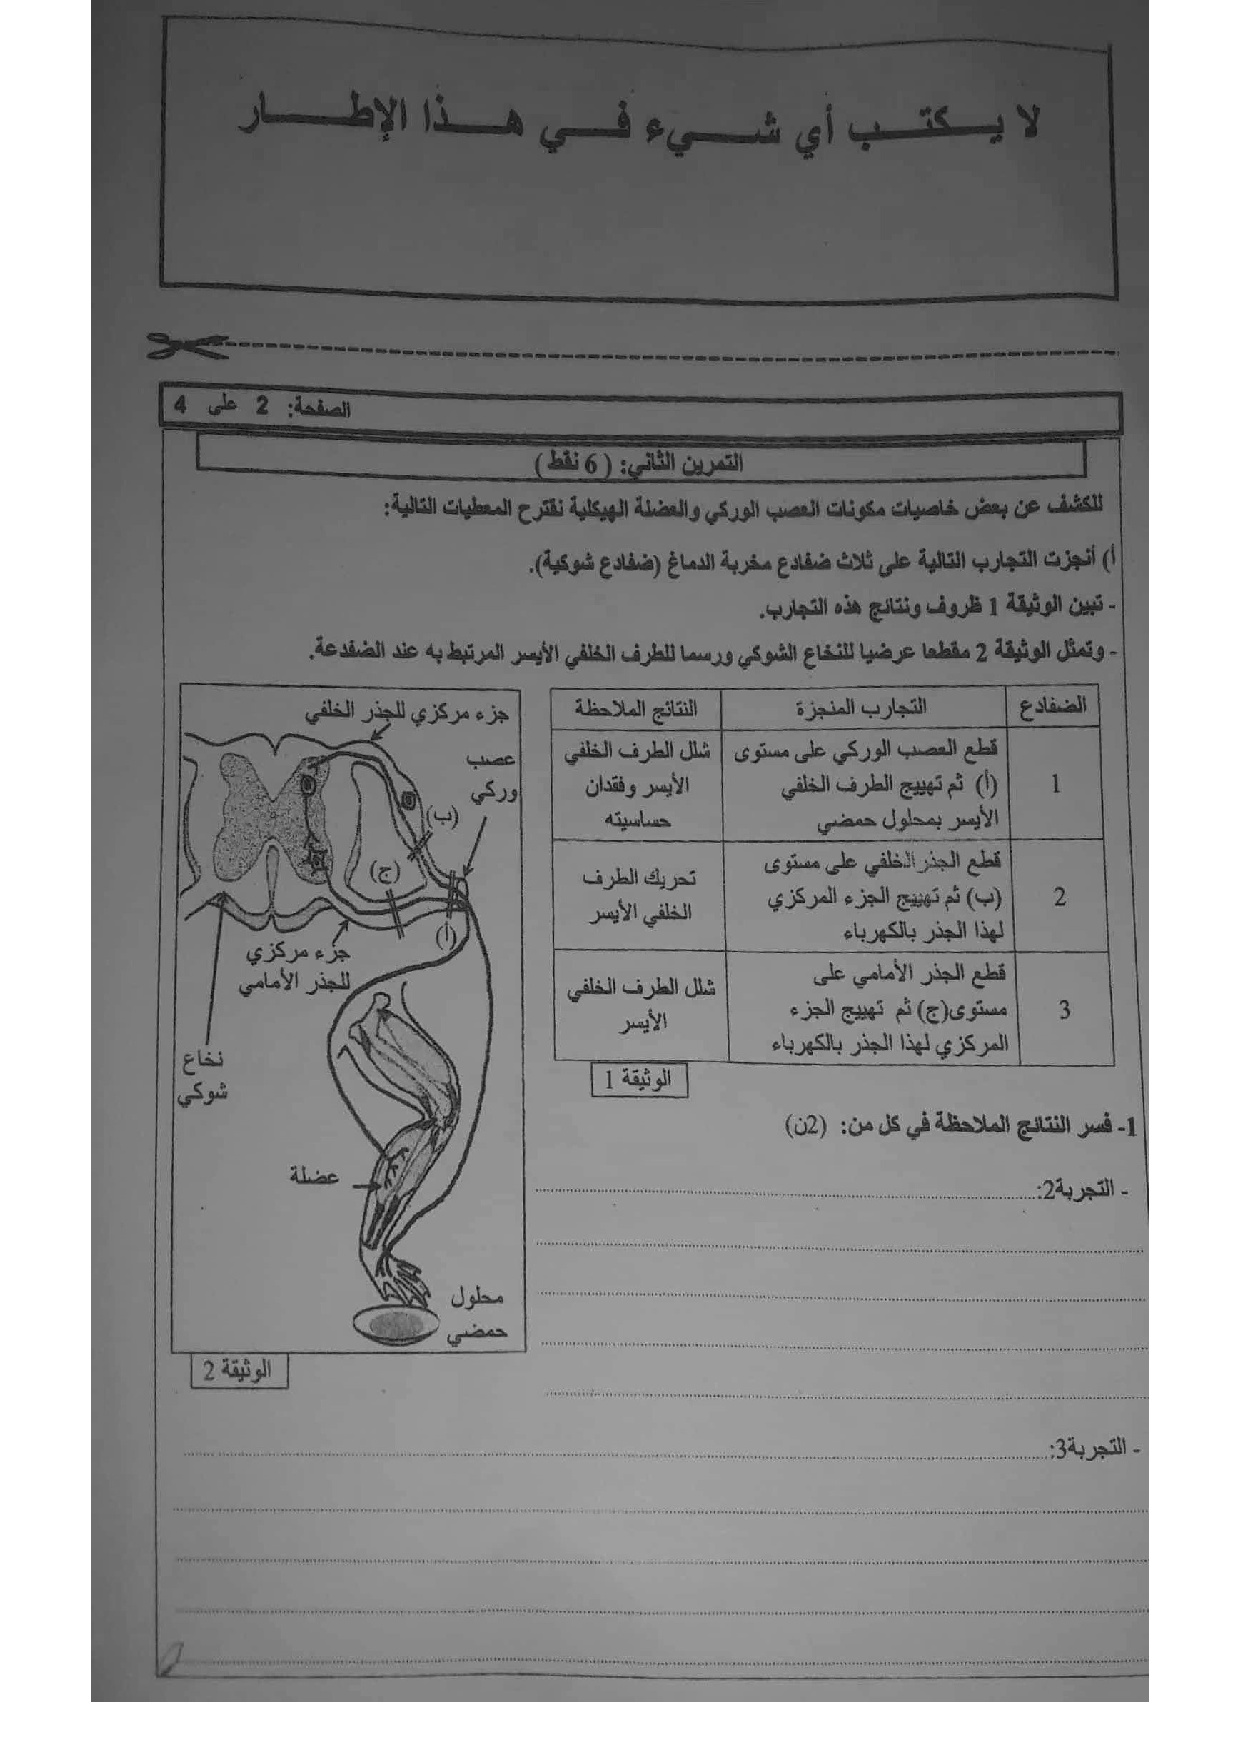 لا يكتب أي شيء في هذا الإطار
الصفحة: 2 على 4
التمرين الثاني: ( 6 نقط )
للكشف عن بعض خاصيات مكونات العصب الوركي والعضلة الهيكلية نقترح المعطيات التالية:
أ) أنجزت التجارب التالية على ثلاث ضفادع مخربة الدماغ (ضفادع شوكية).
- تبين الوثيقة 1 ظروف ونتائج هذه التجارب.
- وتمثل الوثيقة 2 مقطعا عرضيا للنخاع الشوكي ورسما للطرف الخلفي الأيسر المرتبط به عند الضفدعة.
الضفادع التجارب المنجزة النتائج الملاحظة
1
قطع العصب الوركي على مستوى
(أ) ثم تهييج الطرف الخلفي
الأيسر بمحلول حمضي
شلل الطرف الخلفي
الأيسر وفقدان
حساسيته
2
قطع الجذر الخلفي على مستوى
(ب) ثم تهييج الجزء المركزي
لهذا الجذر بالكهرباء
تحريك الطرف
الخلفي الأيسر
3
قطع الجذر الأمامي على
مستوى(ج) ثم تهييج الجزء
المركزي لهذا الجذر بالكهرباء
شلل الطرف الخلفي
الأيسر
الوثيقة 1
جزء مركزي للجذر الخلفي
عصب
وركي
(ب)
(ج)
(أ)
جزء مركزي
للجذر الأمامي
نخاع
شوكي
عضلة
محلول
حمضي
الوثيقة 2
1- فسر النتائج الملاحظة في كل من: (2ن)
- التجربة2:
- التجربة3: